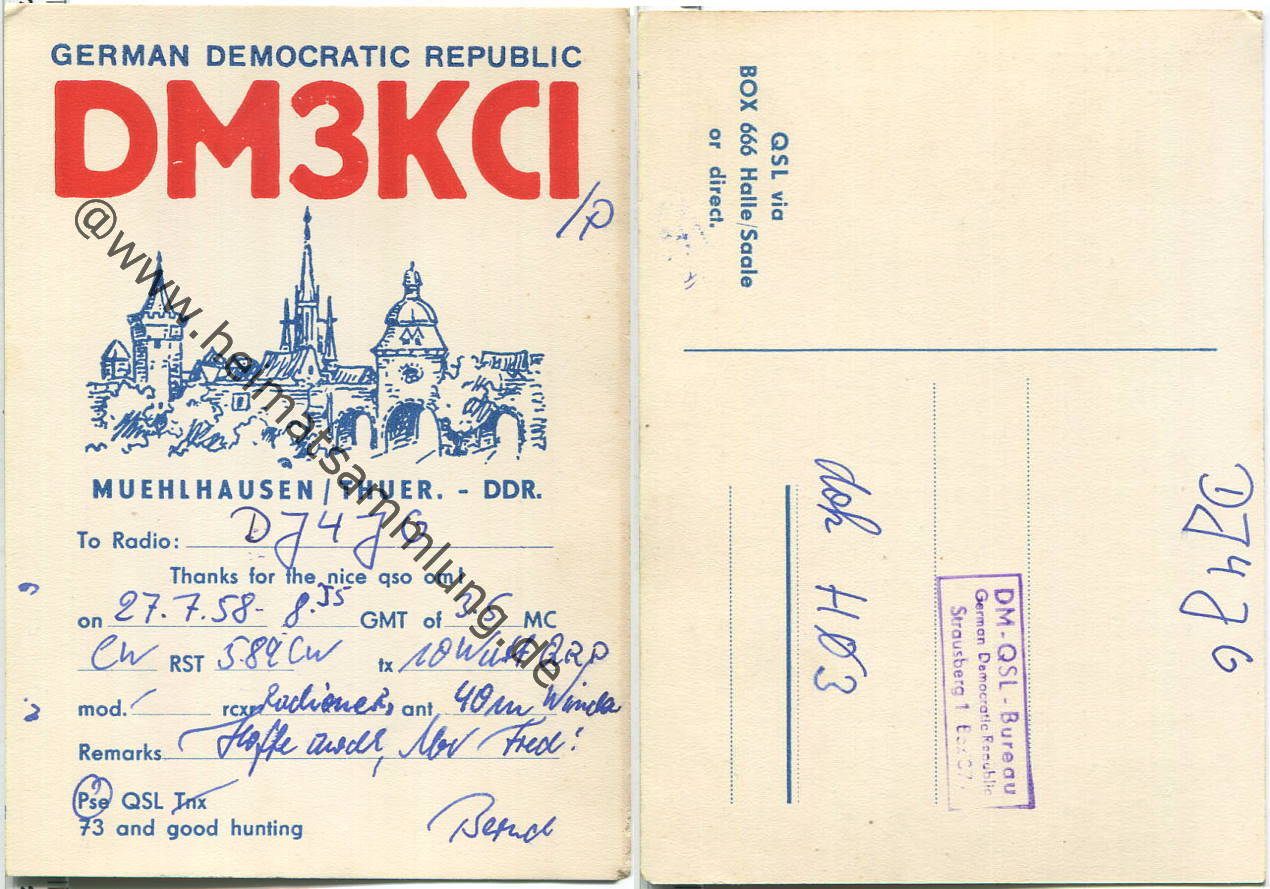 GERMAN DEMOCRATIC REPUBLIC
DM3KCI
/P
@www.heimatsammlung.de
MUEHLHAUSEN/THUER. - DDR.
To Radio: DJ4JG
Thanks for the nice qso om!
on 27.7.58 - 8.35 GMT of 3.6 MC
CW RST 589 CW tx 10 Watt QRP
mod. rcxr ant 40m
Remarks Hoffe
Pse QSL Tnx
73 and good hunting
Bernd
QSL via
BOX 666 Halle/Saale
or direct.
DJ4JG
DM-QSL-Bureau
German Democratic Republic
Strausberg 1
dok HØ3